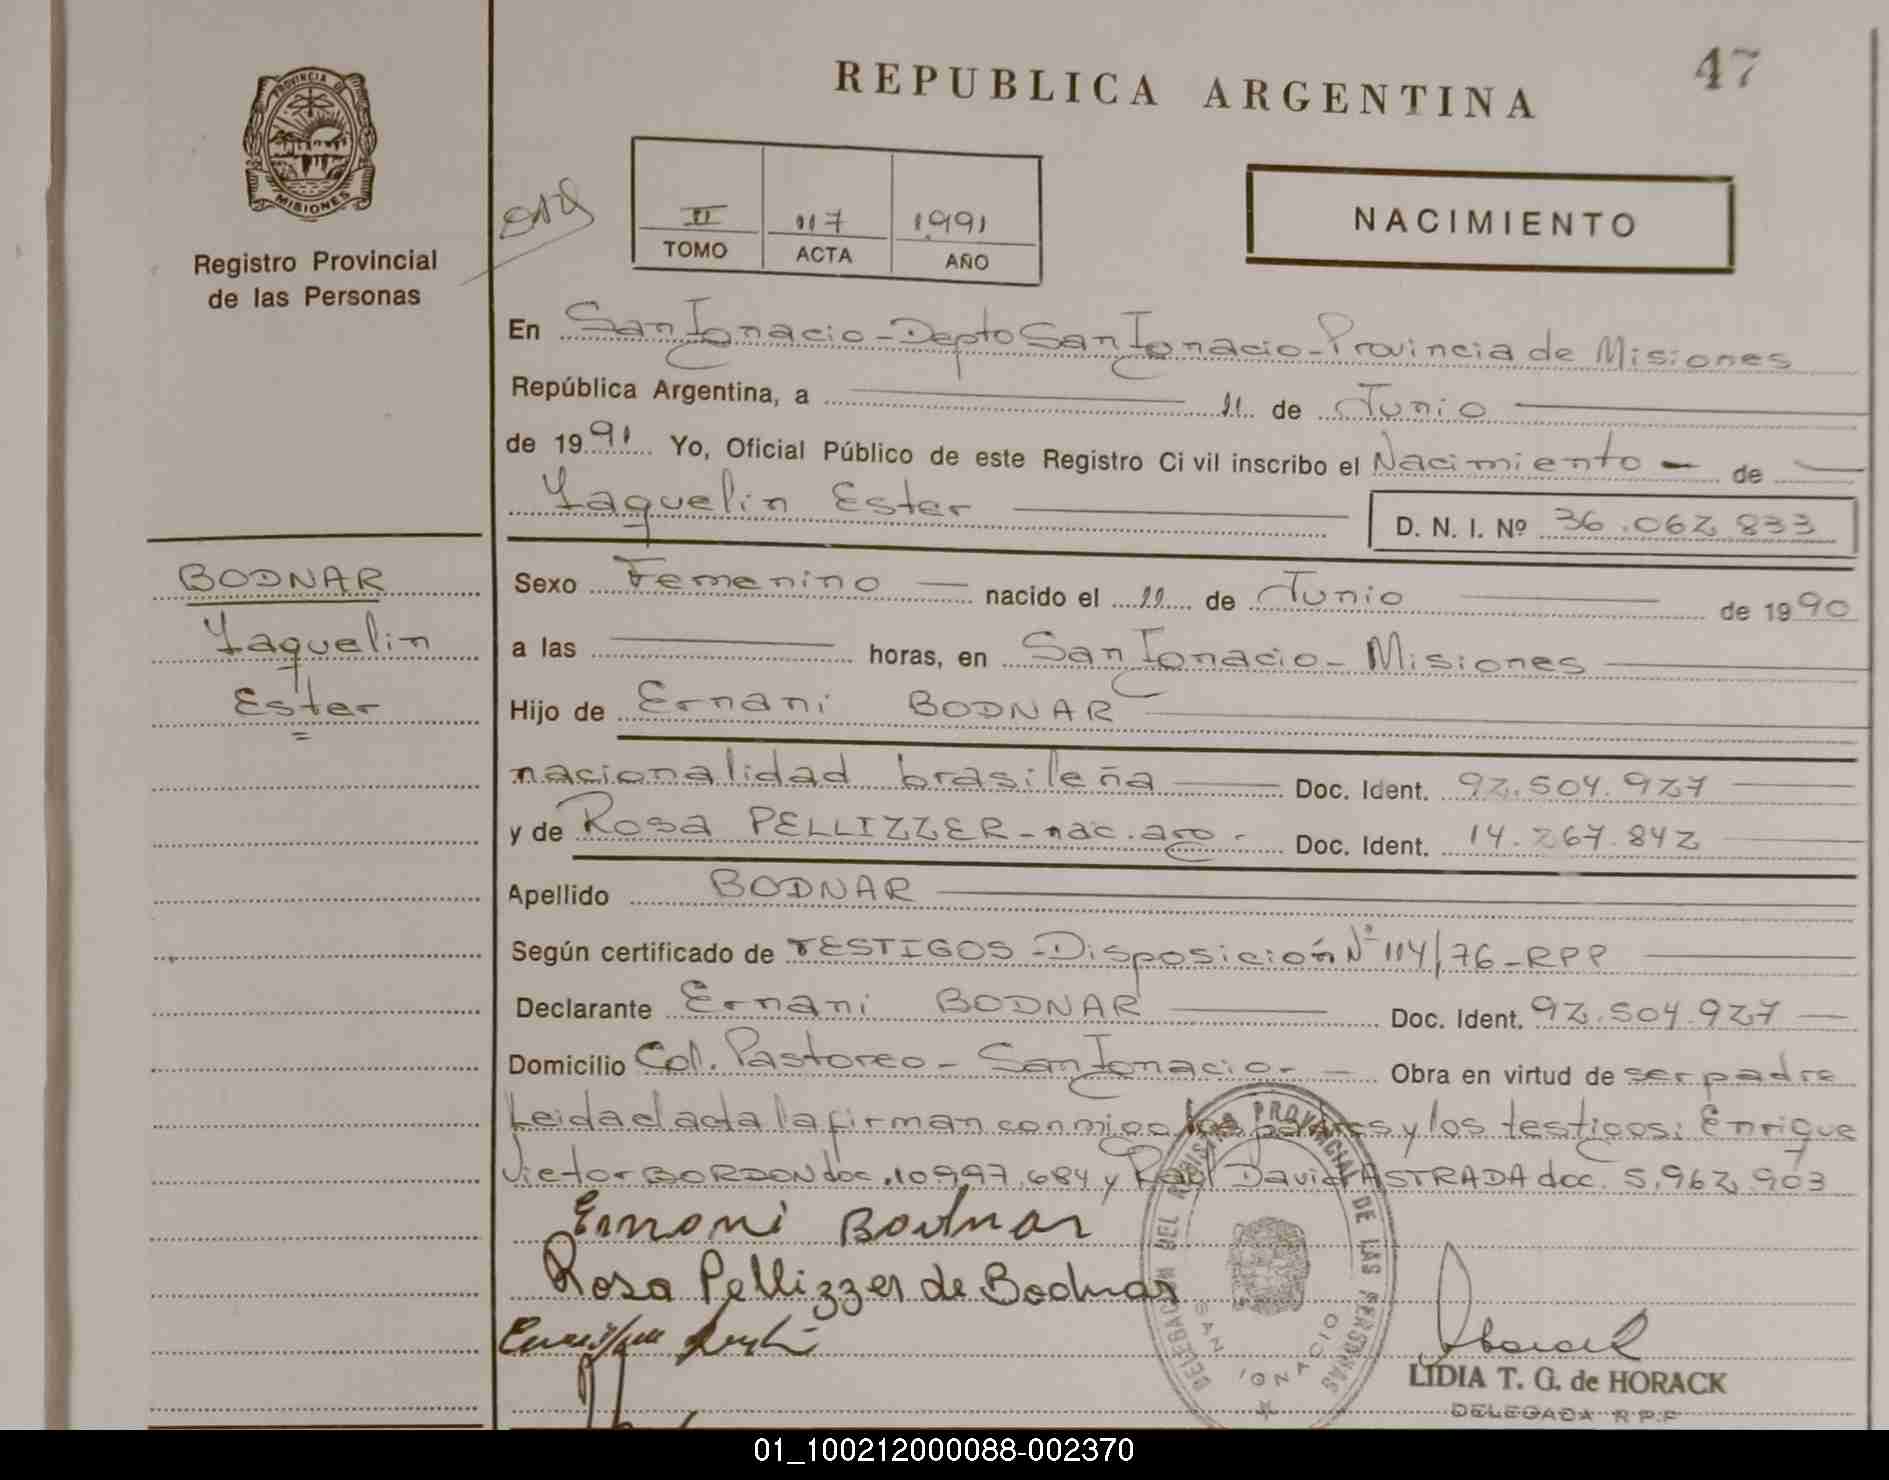 47
REPUBLICA ARGENTINA
PROVINCIA DE
MISIONES
Registro Provincial
de las Personas
II 117 1991
TOMO ACTA AÑO
NACIMIENTO
En San Ignacio - Depto San Ignacio - Provincia de Misiones
República Argentina, a 11 de Junio
de 1991 Yo, Oficial Público de este Registro Civil inscribo el Nacimiento - de
Yaquelin Ester D. N. I. Nº 36.062.833
BODNAR
Yaquelin
Ester
Sexo Femenino nacido el 11 de Junio de 1990
a las horas, en San Ignacio - Misiones
Hijo de Ernani BODNAR
nacionalidad brasileña Doc. Ident. 92.504.927
y de Rosa PELLIZZER - nac. arg - Doc. Ident. 14.267.842
Apellido BODNAR
Según certificado de TESTIGOS - Disposición Nº 114/76 - RPP
Declarante Ernani BODNAR Doc. Ident. 92.504.927
Domicilio Col. Pastoreo - San Ignacio - Obra en virtud de ser padre
Leida el acta la firman conmigo los padres y los testigos: Enrique
Victor BORDON doc. 10997.684 y Raúl David ASTRADA doc. 5.962.903
Ernani Bodnar
Rosa Pellizzer de Bodnar
DELEGACION DEL REGISTRO PROVINCIAL DE LAS PERSONAS
SAN IGNACIO
LIDIA T. G. de HORACK
DELEGADA R.P.P
01_100212000088-002370